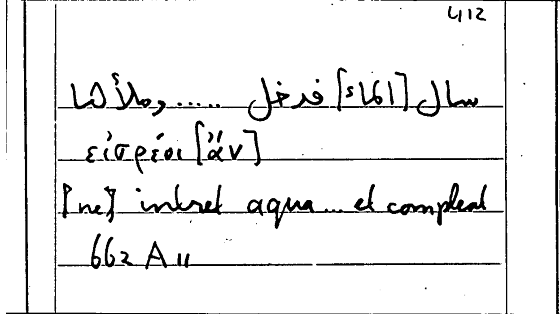 412
سال [الماء] فدخل ..... وملأها
εἰσρέοι [ἄν]
[ne] intret aqua ... et compleat
662 A 11